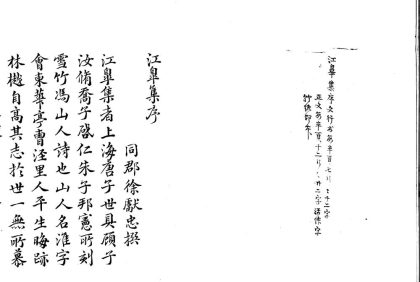 江皋集序文行書每半頁七行行十三字
正文每半頁十二行行廿二字
江皋集序
同郡徐獻忠撰
江皋集者上海唐子世具顧子
汝脩喬子啓仁朱子邦憲所刻
雪竹馮山人詩也山人名淮字
會東華亭曹涇里人平生晦跡
林樾自高其志於世一無所慕